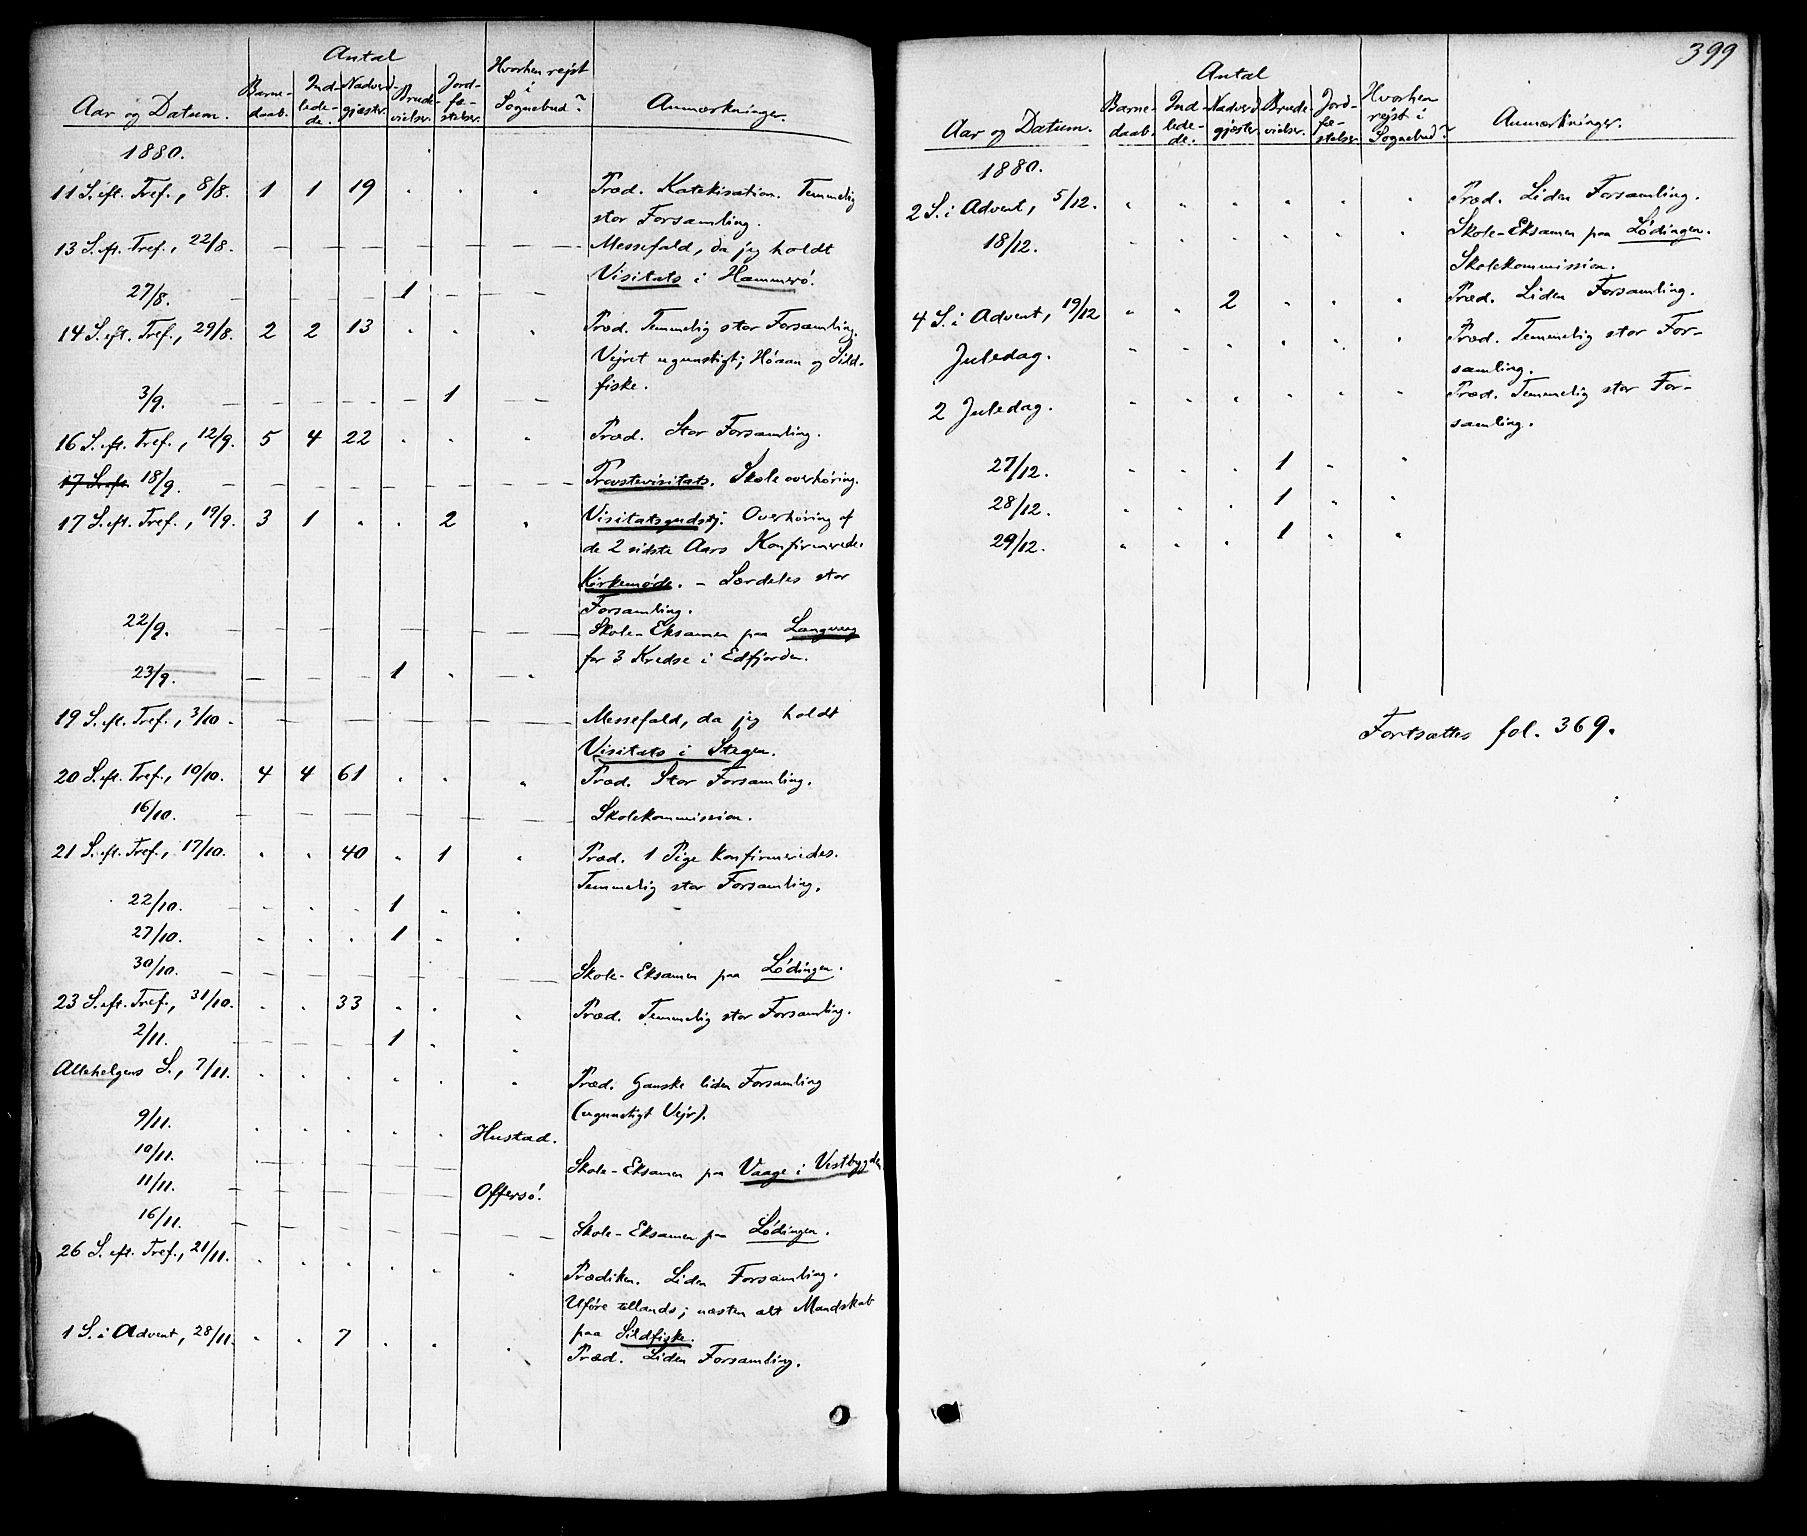 Antal
Aar og Datum. Barne-daab. Ind-lede-de. Nadverd-gjæster Brude-vielser. Jord-fæ-stelser. Hvorhen rejst i Sognebud? Anmærkninger
1880.
11 S. eft. Tref., 8/8. 1 1 19 . . . Præd. Katekisation. Temmelig
stor Forsamling.
13 S. eft. Tref., 22/8. — — — — — — Messefald, da jeg holdt
Visitats i Hammerø.
27/8. — — — 1 — —
14 S. eft. Tref., 29/8. 2 2 13 . . . Præd. Temmelig stor Forsamling.
Vejret ugunstigt; Høaan og Sild-
fiske.
3/9. — — — — 1 —
16 S. eft. Tref., 12/9. 5 4 22 . . . Præd. Stor Forsamling.
17 S. eft. 18/9. — — — — — — Provstevisitats. Skoleoverhøring.
17 S. eft. Tref., 19/9. 3 1 . . 2 . Visitatsgudstj. Overhøring af
de 2 sidste Aars Konfirmerede.
Kirkemøde. – Særdeles stor
Forsamling.
22/9. — — — — — — Skole-Eksamen paa Langvaag
for 3 Kredse i Edfjorden.
23/9. — — — 1 . .
19 S. eft. Tref., 3/10. — — — — — — Messefald, da jeg holdt
Visitats i Stegen.
20 S. eft. Tref., 10/10. 4 4 61 . . . Præd. Stor Forsamling.
16/10. — — — — — — Skolekommission.
21 S. eft. Tref., 17/10. . . 40 . 1 . Præd. 1 Pige konfirmeredes.
Temmelig stor Forsamling.
22/10. . . . 1 . .
27/10. . . . 1 . .
30/10. — — — — — — Skole-Eksamen paa Lødingen.
23 S. eft. Tref., 31/10. . . 33 . . . Præd. Temmelig stor Forsamling.
2/11. — — — 1 . .
Allehelgens S., 7/11. . . . . . . Præd. Ganske liden Forsamling
(ugunstigt Vejr).
9/11. . . . . . Hustad.
10/11. — — — — — Skole-Eksamen paa Vaage i Vestbygden
11/11. — — — — — Offersø.
16/11. — — — — — — Skole-Eksamen paa Lødingen.
26 S. eft. Tref., 21/11. . . . . . . Prædiken. Liden Forsamling.
Uføre tillands; næsten alt Mandskab
paa Sildfiske.
1 S. i Advent, 28/11. . . 7 . . . Præd. Liden Forsamling.
399
Antal
Aar og Datum. Barne-daab. Ind-lede-de. Nadverd-gjæster Brude-vielser. Jord-fæ-stelser. Hvorhen rejst i Sognebud? Anmærkninger.
1880.
2 S. i Advent, 5/12. . . . . . . Præd. Liden Forsamling.
18/12. . . . . . . Skole-Eksamen paa Lødingen.
Skolekommission.
4 S. i Advent, 19/12 . . 2 . . . Præd. Liden Forsamling.
Juledag. . . . . . . Præd. Temmelig stor For-
samling.
2 Juledag. . . . . . . Præd. Temmelig stor For-
samling.
27/12. . . . 1 . .
28/12. . . . 1 . .
29/12. . . . 1 . .
Fortsættes fol. 369.